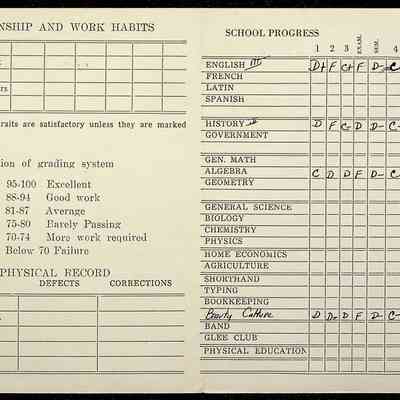 NSHIP AND WORK HABITS
rs
raits are satisfactory unless they are marked
on of grading system
95-100 Excellent
88-94 Good work
81-87 Average
75-80 Barely Passing
70-74 More work required
Below 70 Failure
PHYSICAL RECORD
DEFECTS CORRECTIONS
SCHOOL PROGRESS
1 2 3 EXAM. SEM. 4
ENGLISH III D+ F C+ F D- C-
FRENCH
LATIN
SPANISH
HISTORY D F C- D D- C-
GOVERNMENT
GEN. MATH
ALGEBRA C D D F D- C-
GEOMETRY
GENERAL SCIENCE
BIOLOGY
CHEMISTRY
PHYSICS
HOME ECONOMICS
AGRICULTURE
SHORTHAND
TYPING
BOOKKEEPING
Beauty Culture D D- D F D- C-
BAND
GLEE CLUB
PHYSICAL EDUCATION